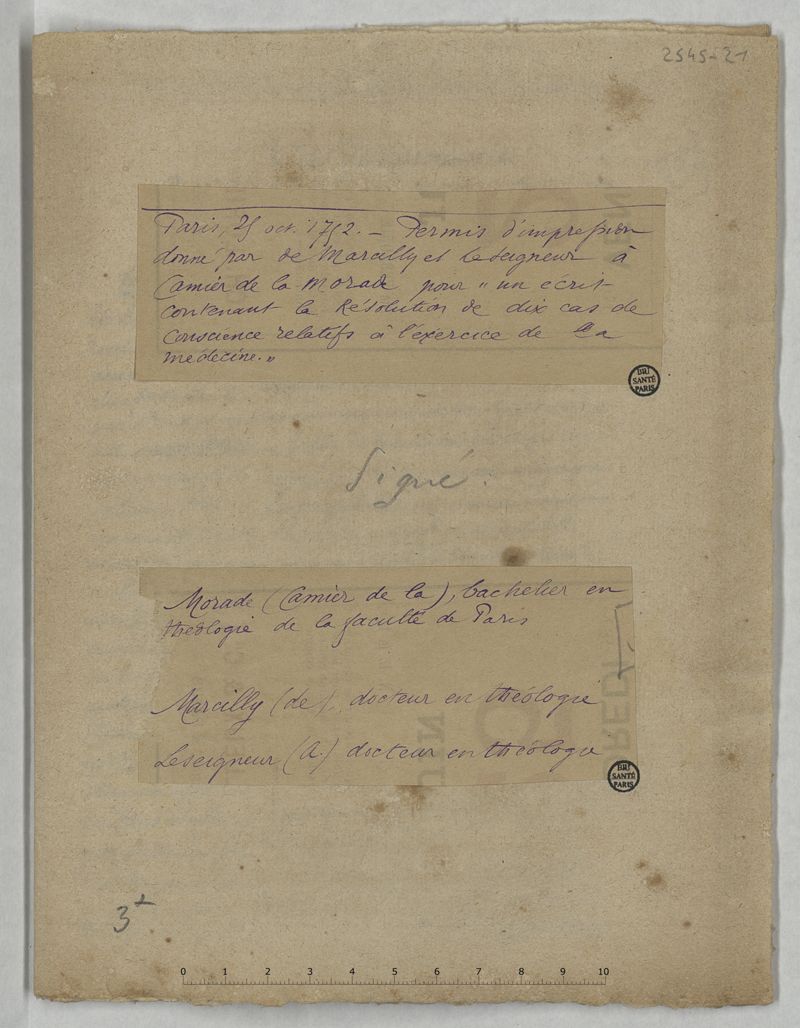 2545-21
Paris, 25 oct. 1752. — Permis d'impression
donné par de Marcilly et Leseigneur à
Camier de la Morade pour "un écrit
contenant la Résolution de dix cas de
conscience relatifs à l'exercice de la
médecine."
BIU
SANTÉ
PARIS
Signé :
Morade (Camier de la), bachelier en
théologie de la faculté de Paris
Marcilly (de), docteur en théologie
Leseigneur (A.) docteur en théologie
BIU
SANTÉ
PARIS
3+
0 1 2 3 4 5 6 7 8 9 10